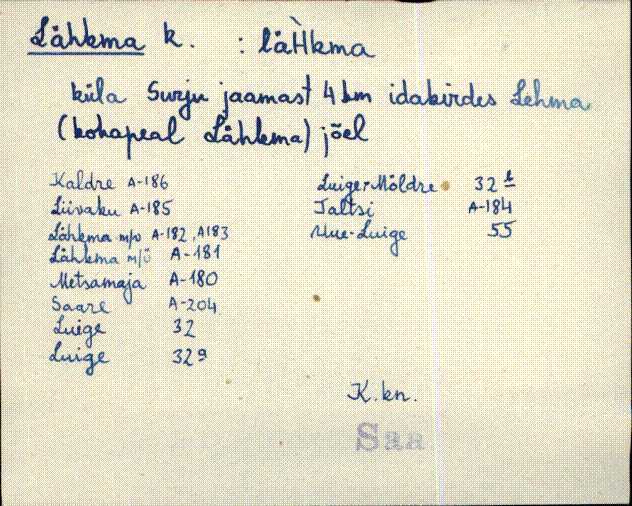 Lähkma k. : läH̀kma
küla Surju jaamast 4 km idakirdes Lehma
(kohapeal Lähkma) jõel
Kaldre A-186
Liivaku A-185
Lähkma m/v A-182, A183
Lähkma m/ü A-181
Metsamaja A-180
Saare A-204
Luige 32
Luige 32a
Luige-Möldre 32
Taltsi A-184
Uue-Luige 55
K.kn.
Saa